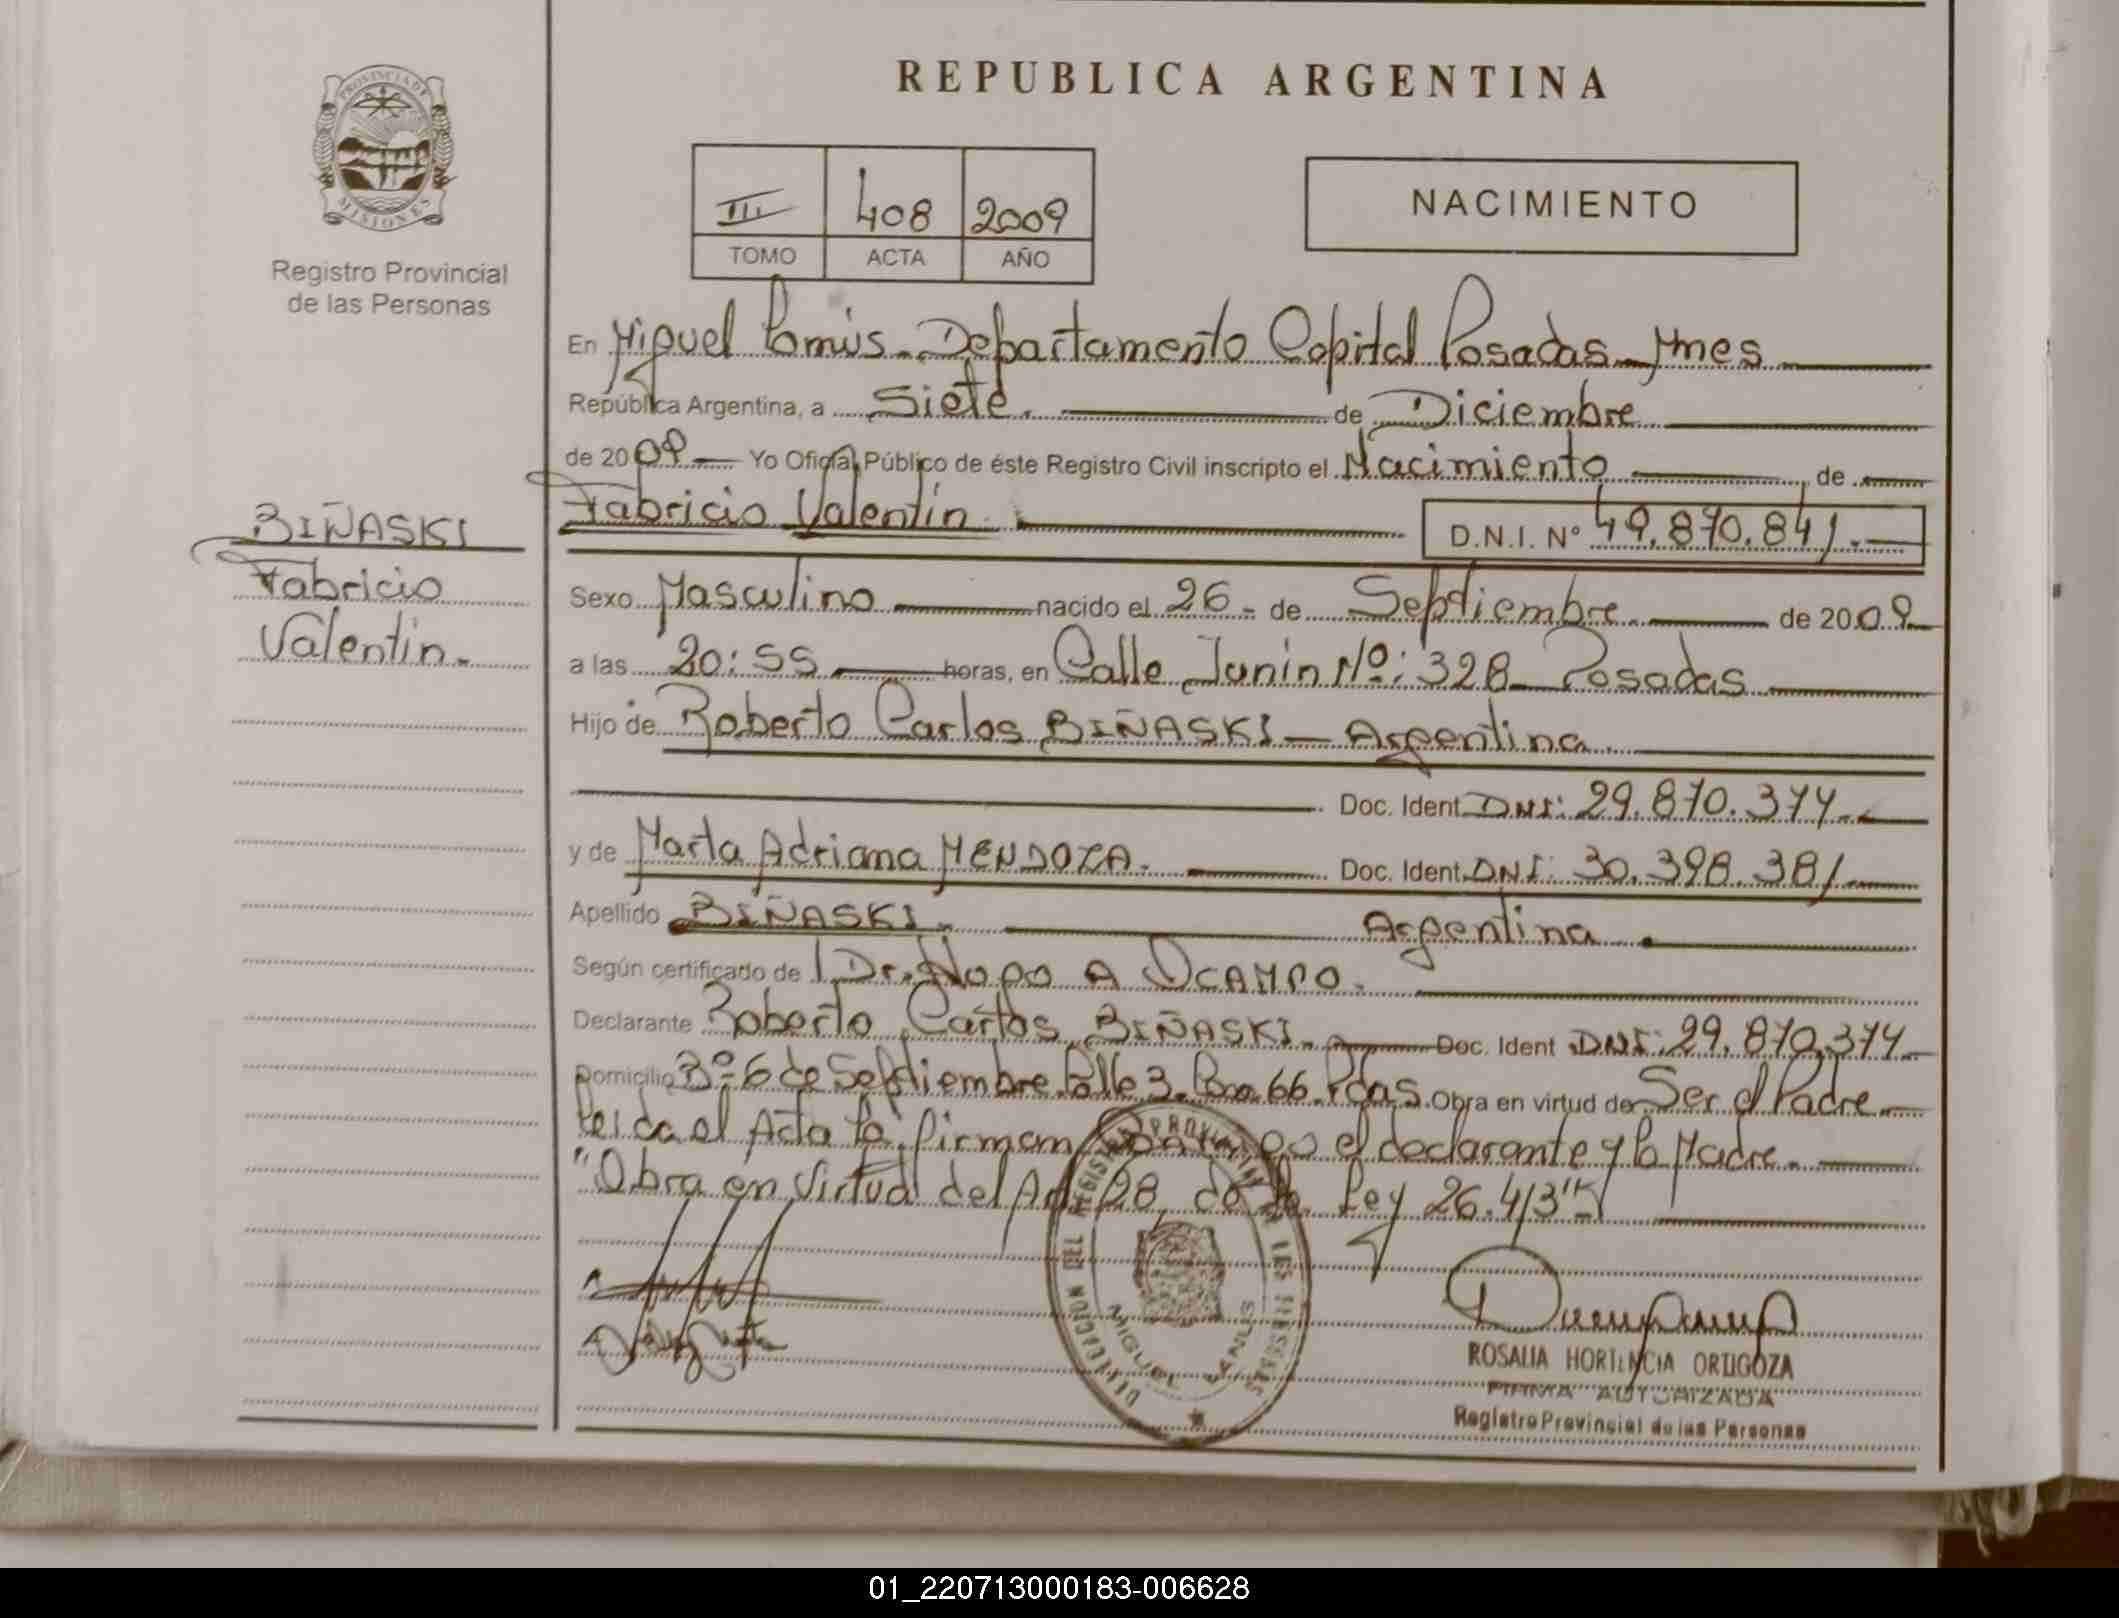 REPUBLICA ARGENTINA
PROVINCIA DE
MISIONES
Registro Provincial
de las Personas
III 408 2009
TOMO ACTA AÑO
NACIMIENTO
En Miguel Lanús - Departamento Capital Posadas - Mnes
República Argentina, a Siete. de Diciembre
de 2009 Yo Oficial Público de éste Registro Civil inscripto el Nacimiento de
Fabricio Valentín
D.N.I. Nº 49.870.841.-
BIÑASKI
Fabricio
Valentín.-
Sexo Masculino nacido el 26 - de Septiembre. de 2009
a las 20:55 horas, en Calle Junín Nº: 328 - Posadas
Hijo de Roberto Carlos BIÑASKI - Argentina.
Doc. Ident. DNI: 29.870.374.-
y de Marta Adriana MENDOZA. Doc. Ident. DNI: 30.398.381
Apellido BIÑASKI.- Argentina.
Según certificado de Dr. A OCAMPO.
Declarante Roberto Carlos BIÑASKI.- Doc. Ident DNI: 29.870.374
Domicilio Bº 6 de Septiembre Calle 3 66. Pdas. Obra en virtud de Ser el Padre
Leída el Acta la firman conmigo el declarante y la Madre.
"Obra en Virtud del Art 28 de la Ley 26.413"
DELEGACION DEL REGISTRO PROVINCIAL DE LAS PERSONAS
MIGUEL LANUS
ROSALIA HORTENCIA ORTIGOZA
FIRMA AUTORIZADA
Registro Provincial de las Personas
01_220713000183-006628